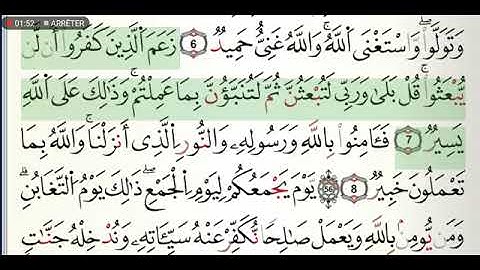 01:52 ARRÊTER
وَتَوَلَّوا۟ ۖ وَّٱسْتَغْنَى ٱللَّهُ ۚ وَٱللَّهُ غَنِىٌّ حَمِيدٌ 6 زَعَمَ ٱلَّذِينَ كَفَرُوٓا۟ أَن لَّن
يُبْعَثُوا۟ ۚ قُلْ بَلَىٰ وَرَبِّى لَتُبْعَثُنَّ ثُمَّ لَتُنَبَّؤُنَّ بِمَا عَمِلْتُمْ ۚ وَذَٰلِكَ عَلَى ٱللَّهِ
يَسِيرٌ 7 فَـَٔامِنُوا۟ بِٱللَّهِ وَرَسُولِهِۦ وَٱلنُّورِ ٱلَّذِىٓ أَنزَلْنَا ۚ وَٱللَّهُ بِمَا
تَعْمَلُونَ خَبِيرٌ 8 56 يَوْمَ يَجْمَعُكُمْ لِيَوْمِ ٱلْجَمْعِ ۖ ذَٰلِكَ يَوْمُ ٱلتَّغَابُنِ ۗ
وَمَن يُؤْمِنۢ بِٱللَّهِ وَيَعْمَلْ صَـٰلِحًا يُكَفِّرْ عَنْهُ سَيِّـَٔاتِهِۦ وَيُدْخِلْهُ جَنَّـٰتٍ